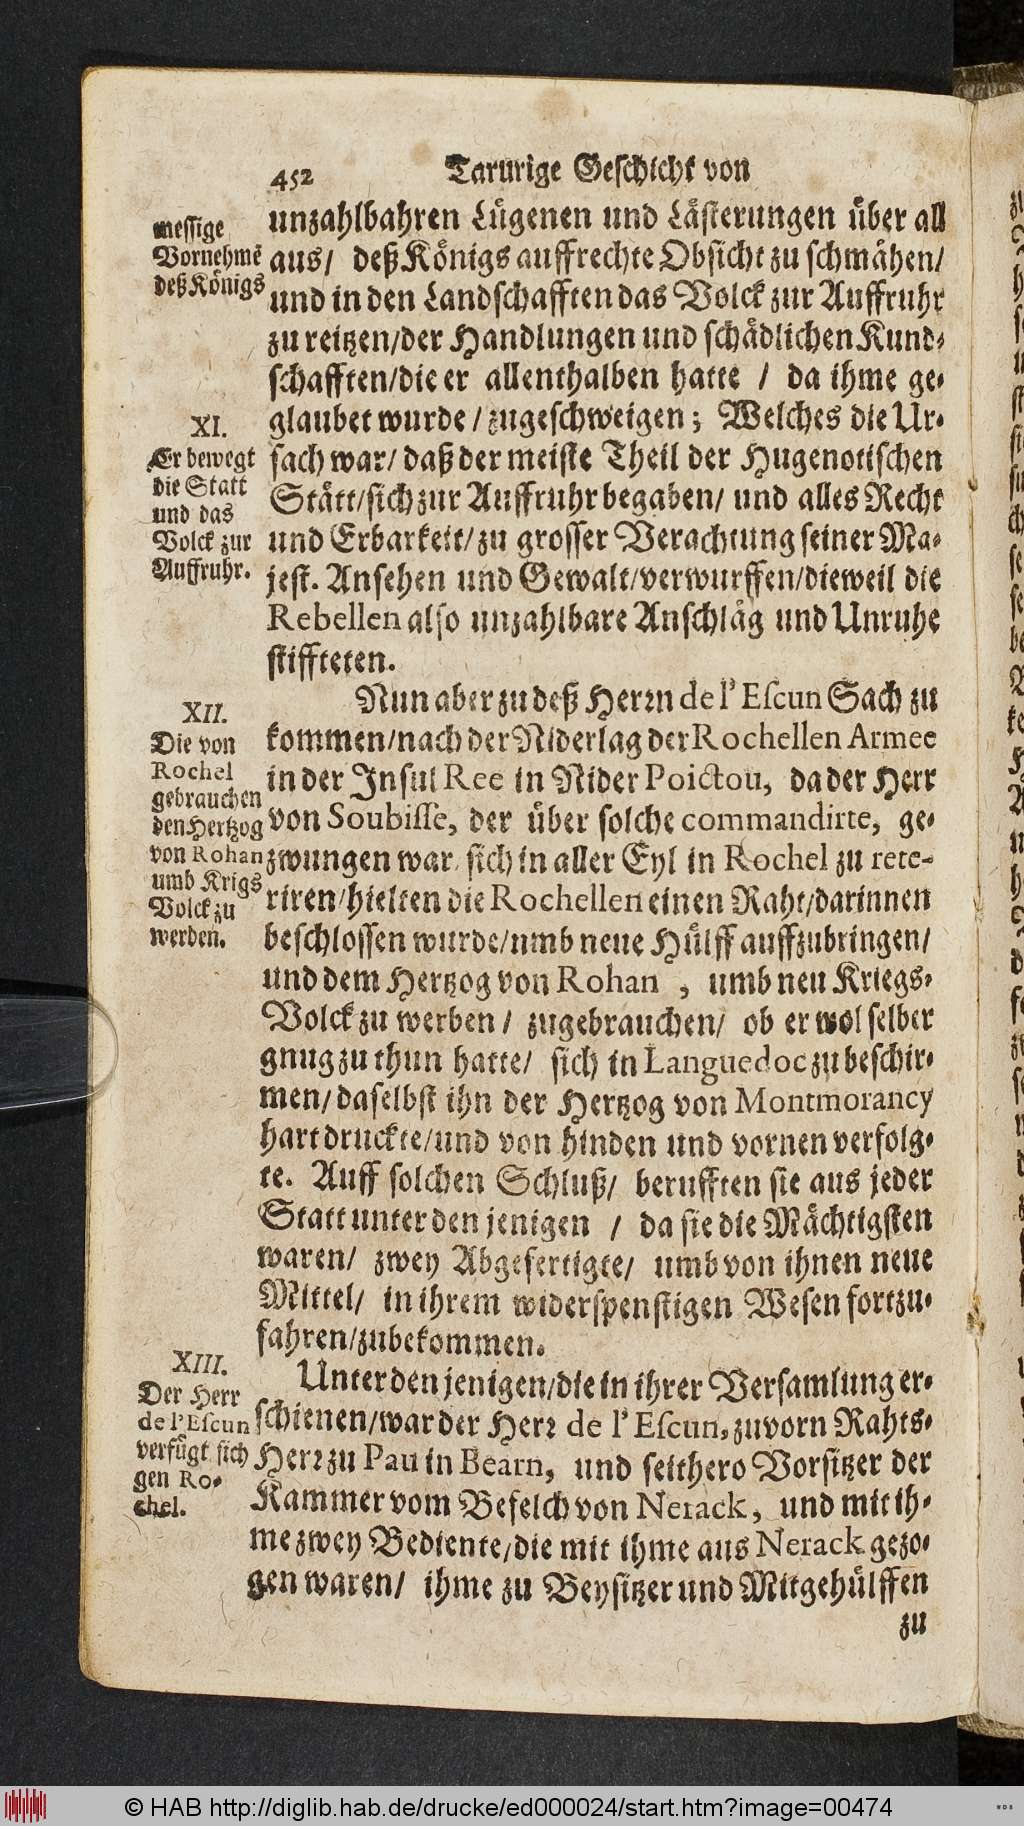 452 Tarurige Geschicht von
messige
Vornehmē
deß Königs
unzahlbahren Lügenen und Lästerungen über all
aus/ deß Königs auffrechte Obsicht zu schmähen/
und in den Landschafften das Volck zur Auffruhr
zu reitzen/der Handlungen und schädlichen Kund-
schafften/die er allenthalben hatte / da ihme ge-
glaubet wurde / zugeschweigen; Welches die Ur-
sach war/ daß der meiste Theil der Hugenotischen
Stätt/sich zur Auffruhr begaben/ und alles Recht
und Erbarkeit/zu grosser Verachtung seiner Ma-
jest. Ansehen und Gewalt/verwurffen/dieweil die
Rebellen also unzahlbare Anschläg und Unruhe
stiffteten.
XI.
Er bewegt
die Statt
und das
Volck zur
Auffruhr.
Nun aber zu deß Herrn de l'Escun Sach zu
kommen/nach der Niderlag der Rochellen Armee
in der Insul Ree in Nider Poictou, da der Herr
von Soubisse, der über solche commandirte, ge-
zwungen war sich in aller Eyl in Rochel zu rete-
riren/hielten die Rochellen einen Raht/darinnen
beschlossen wurde/umb neue Hülff auffzubringen/
und dem Hertzog von Rohan , umb neu Kriegs-
Volck zu werben / zugebrauchen/ ob er wol selber
gnug zu thun hatte/ sich in Languedoc zu beschir-
men/daselbst ihn der Hertzog von Montmorancy
hart druckte/und von hinden und vornen verfolg-
te. Auff solchen Schluß/ berufften sie aus jeder
Statt unter den jenigen / da sie die Mächtigsten
waren/ zwey Abgefertigte/ umb von ihnen neue
Mittel/ in ihrem widerspenstigen Wesen fortzu-
fahren/zubekommen.
XII.
Die von
Rochel
gebrauchen
den Hertzog
von Rohan
umb Krigs
Volck zu
werden.
Unter den jenigen/die in ihrer Versamlung er-
schienen/war der Herr de l'Escun, zuvorn Rahts-
Herr zu Pau in Bearn, und seithero Vorsitzer der
Kammer vom Befelch von Nerack, und mit ih-
me zwey Bediente/die mit ihme aus Nerack gezo-
gen waren/ ihme zu Beysitzer und Mitgehülffen
zu
XIII.
Der Herr
de l'Escun
verfügt sich
gen Ro-
chel.
© HAB http://diglib.hab.de/drucke/ed000024/start.htm?image=00474